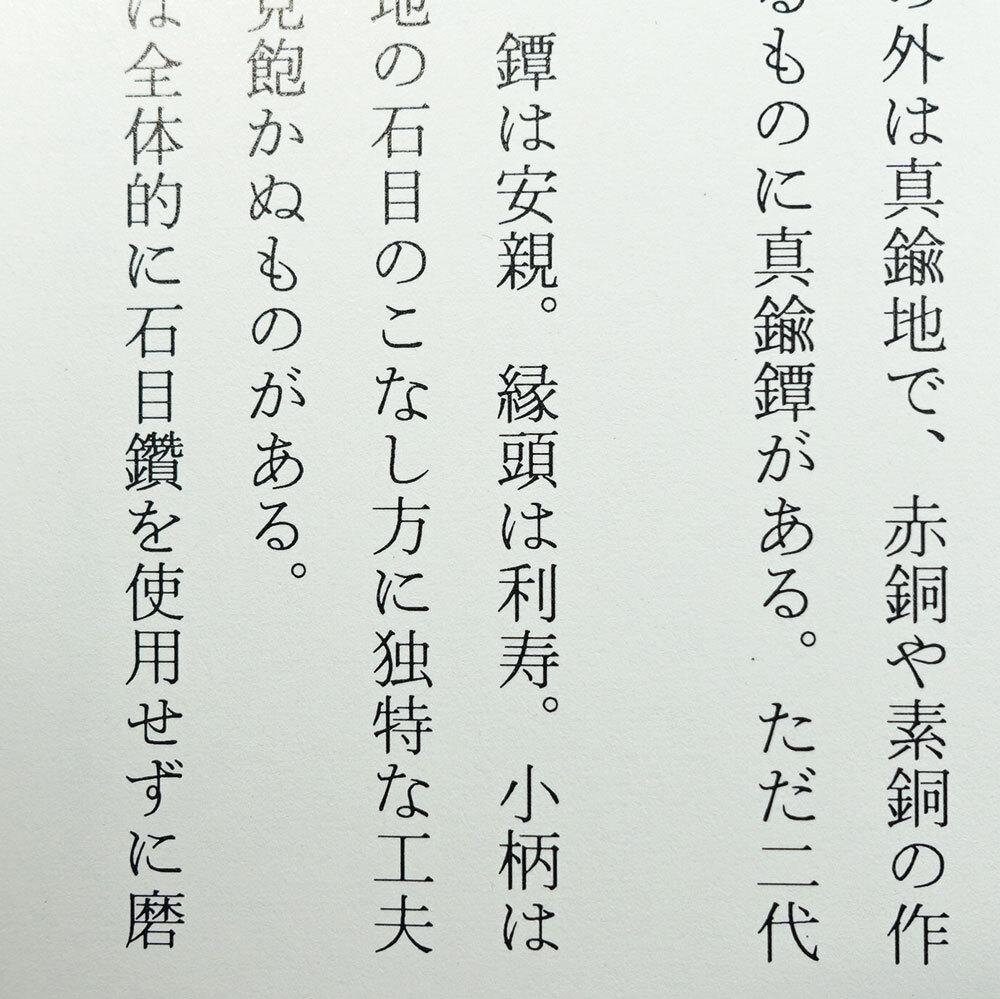 の外は真鍮地で、赤銅や素銅の作
るものに真鍮鐔がある。ただ二代
鐔は安親。縁頭は利寿。小柄は
地の石目のこなし方に独特な工夫
見飽かぬものがある。
は全体的に石目鑽を使用せずに磨